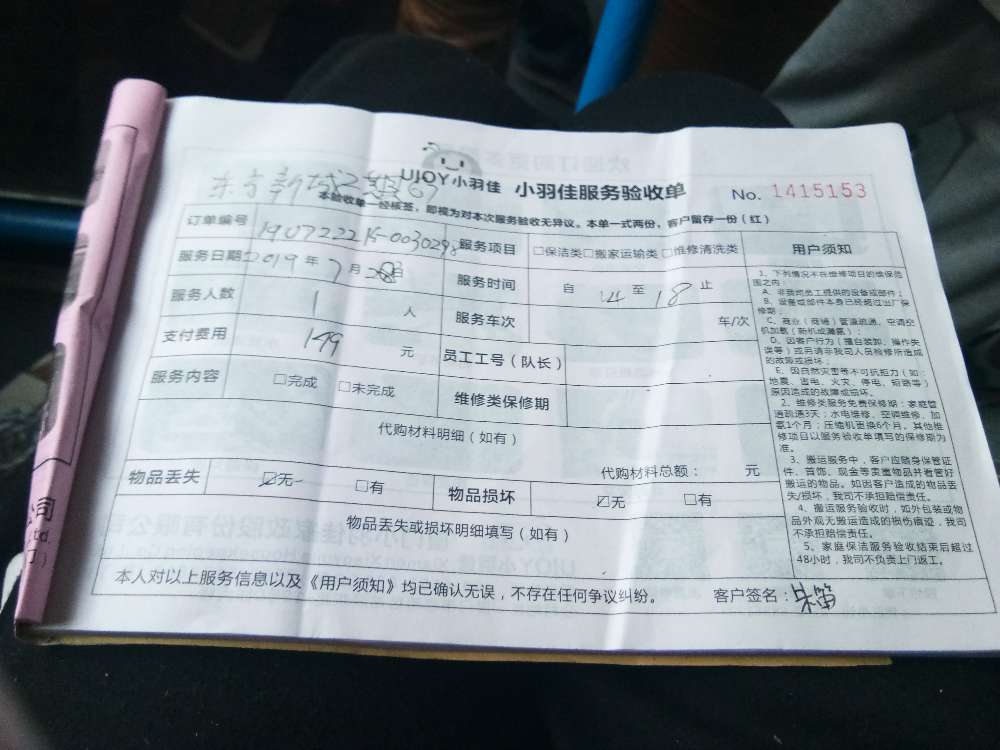 UJOY小羽佳 小羽佳服务验收单 No. 1415153
东方新城2期
本验收单一经核签，即视为对本次服务验收无异议。本单一式两份，客户留存一份（红）
订单编号 服务项目 □保洁类□搬家运输类□维修清洗类 用户须知
服务日期 2019年7月 日 服务时间 自 14 至 18 止
服务人数 1 人 服务车次 车/次
支付费用 149 元 员工工号（队长）
服务内容 □完成 □未完成 维修类保修期
代购材料明细（如有）
代购材料总额： 元
物品丢失 ☑无 □有 物品损坏 ☑无 □有
物品丢失或损坏明细填写（如有）
本人对以上服务信息以及《用户须知》均已确认无误，不存在任何争议纠纷。 客户签名：朱笛
1、下列情况不在维修项目的维保范
围之内：
A、非我司员工提供的设备或部件；
B、设备或部件本身已经超过出厂保
修期；
C、商业（商铺）管道疏通、空调空
机加氨（新机或漏氨）；
D、因客户行为（擅自装卸、操作失
误等）或另请非我司人员检修所造成
的故障或损坏；
E、因自然灾害等不可抗拒力（如：
地震、雷电、火灾、停电、短路等）
原因造成的故障或损坏。
2、维修类服务免费保修期：家庭管
道疏通3天；水电维修、空调维修、加
氨1个月；压缩机更换6个月。其他维
修项目以服务验收单填写的保修期为
准。
3、搬运服务中，客户应随身保管证
件、首饰、现金等贵重物品并看管好
搬运的物品。如因客户造成的物品丢
失/损坏，我司不承担赔偿责任。
4、搬运服务验收时，如外包装或物
品外观无搬运造成的损伤痕迹，我司
不承担赔偿责任。
5、家庭保洁服务验收结束后超过
48小时，我司不负责上门返工。